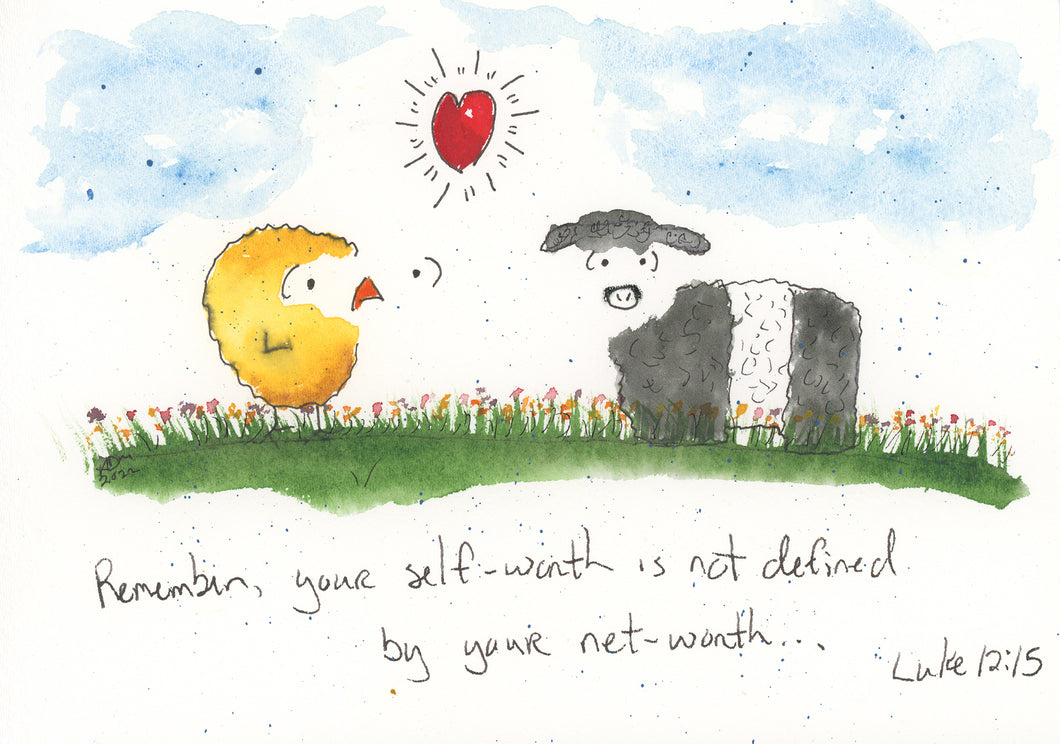 2022
Remember, your self-worth is not defined
by your net-worth...
Luke 12:15